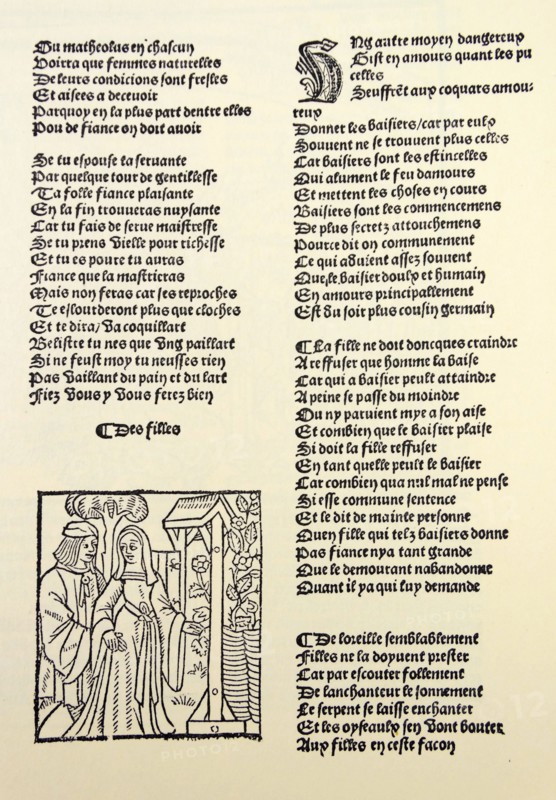 Ou matheolus en chascun
Voirra que femmes naturelles
De leurs condicions sont fresles
Et aisees a decevoir
Parquoy en la plus part dentre elles
Pou de fiance on doit avoir
Se tu espouse ta servante
Par quelque tour de gentillesse
Ta folle fiance plaisante
En la fin trouveras nuysante
Car tu fais de serve maistresse
Se tu prens vielle pour richesse
Et tu es povre tu auras
Fiance que la mastriras
Mais non feras car ses reproches
Te eslourderont plus que cloches
Et te dira/ Va coquillart
Belistre tu nes que vng paillart
Si ne feust moy tu neusses rien
Pas vaillant du pain et du lart
Fiez vous y vous ferez bien
¶ Des filles
VNg autre moyen dangereux
Gist en amours quant les pu
celles
Seuffrẽt aux coquars amou-
reux
Donner les baisiers/car par eulx
Souvent ne se trouvent plus celles
Car baisiers sont les estincelles
Qui alument le feu damours
Et mettent les choses en cours
Baisiers sont les commencemens
De plus secretz attouchemens
Pource dit on communement
Ce qui advient assez souvent
Que le baisier doulx et humain
En amours principallement
Est du soir plus cousin germain
¶ La fille ne doit doncques craindre
A reffuser que homme la baise
Car qui a baisier peult attaindre
A peine se passe du moindre
Ou ny parvient mye a son aise
Et combien que le baisier plaise
Si doit la fille reffuser
En tant quelle peult le baisier
Car combien qua nul mal ne pense
Si esse commune sentence
Et le dit de mainte personne
Quen fille qui telz baisiers donne
Pas fiance nya tant grande
Que le demourant nabandonne
Quant il ya qui luy demande
¶ De loreille semblablement
Filles ne la doyvent prester
Car par escouter follement
De lanchanteur le sonnement
Le serpent se laisse enchanter
Et les oyseaulx sen vont bouter
Aux filles en ceste facon
PHOTO12